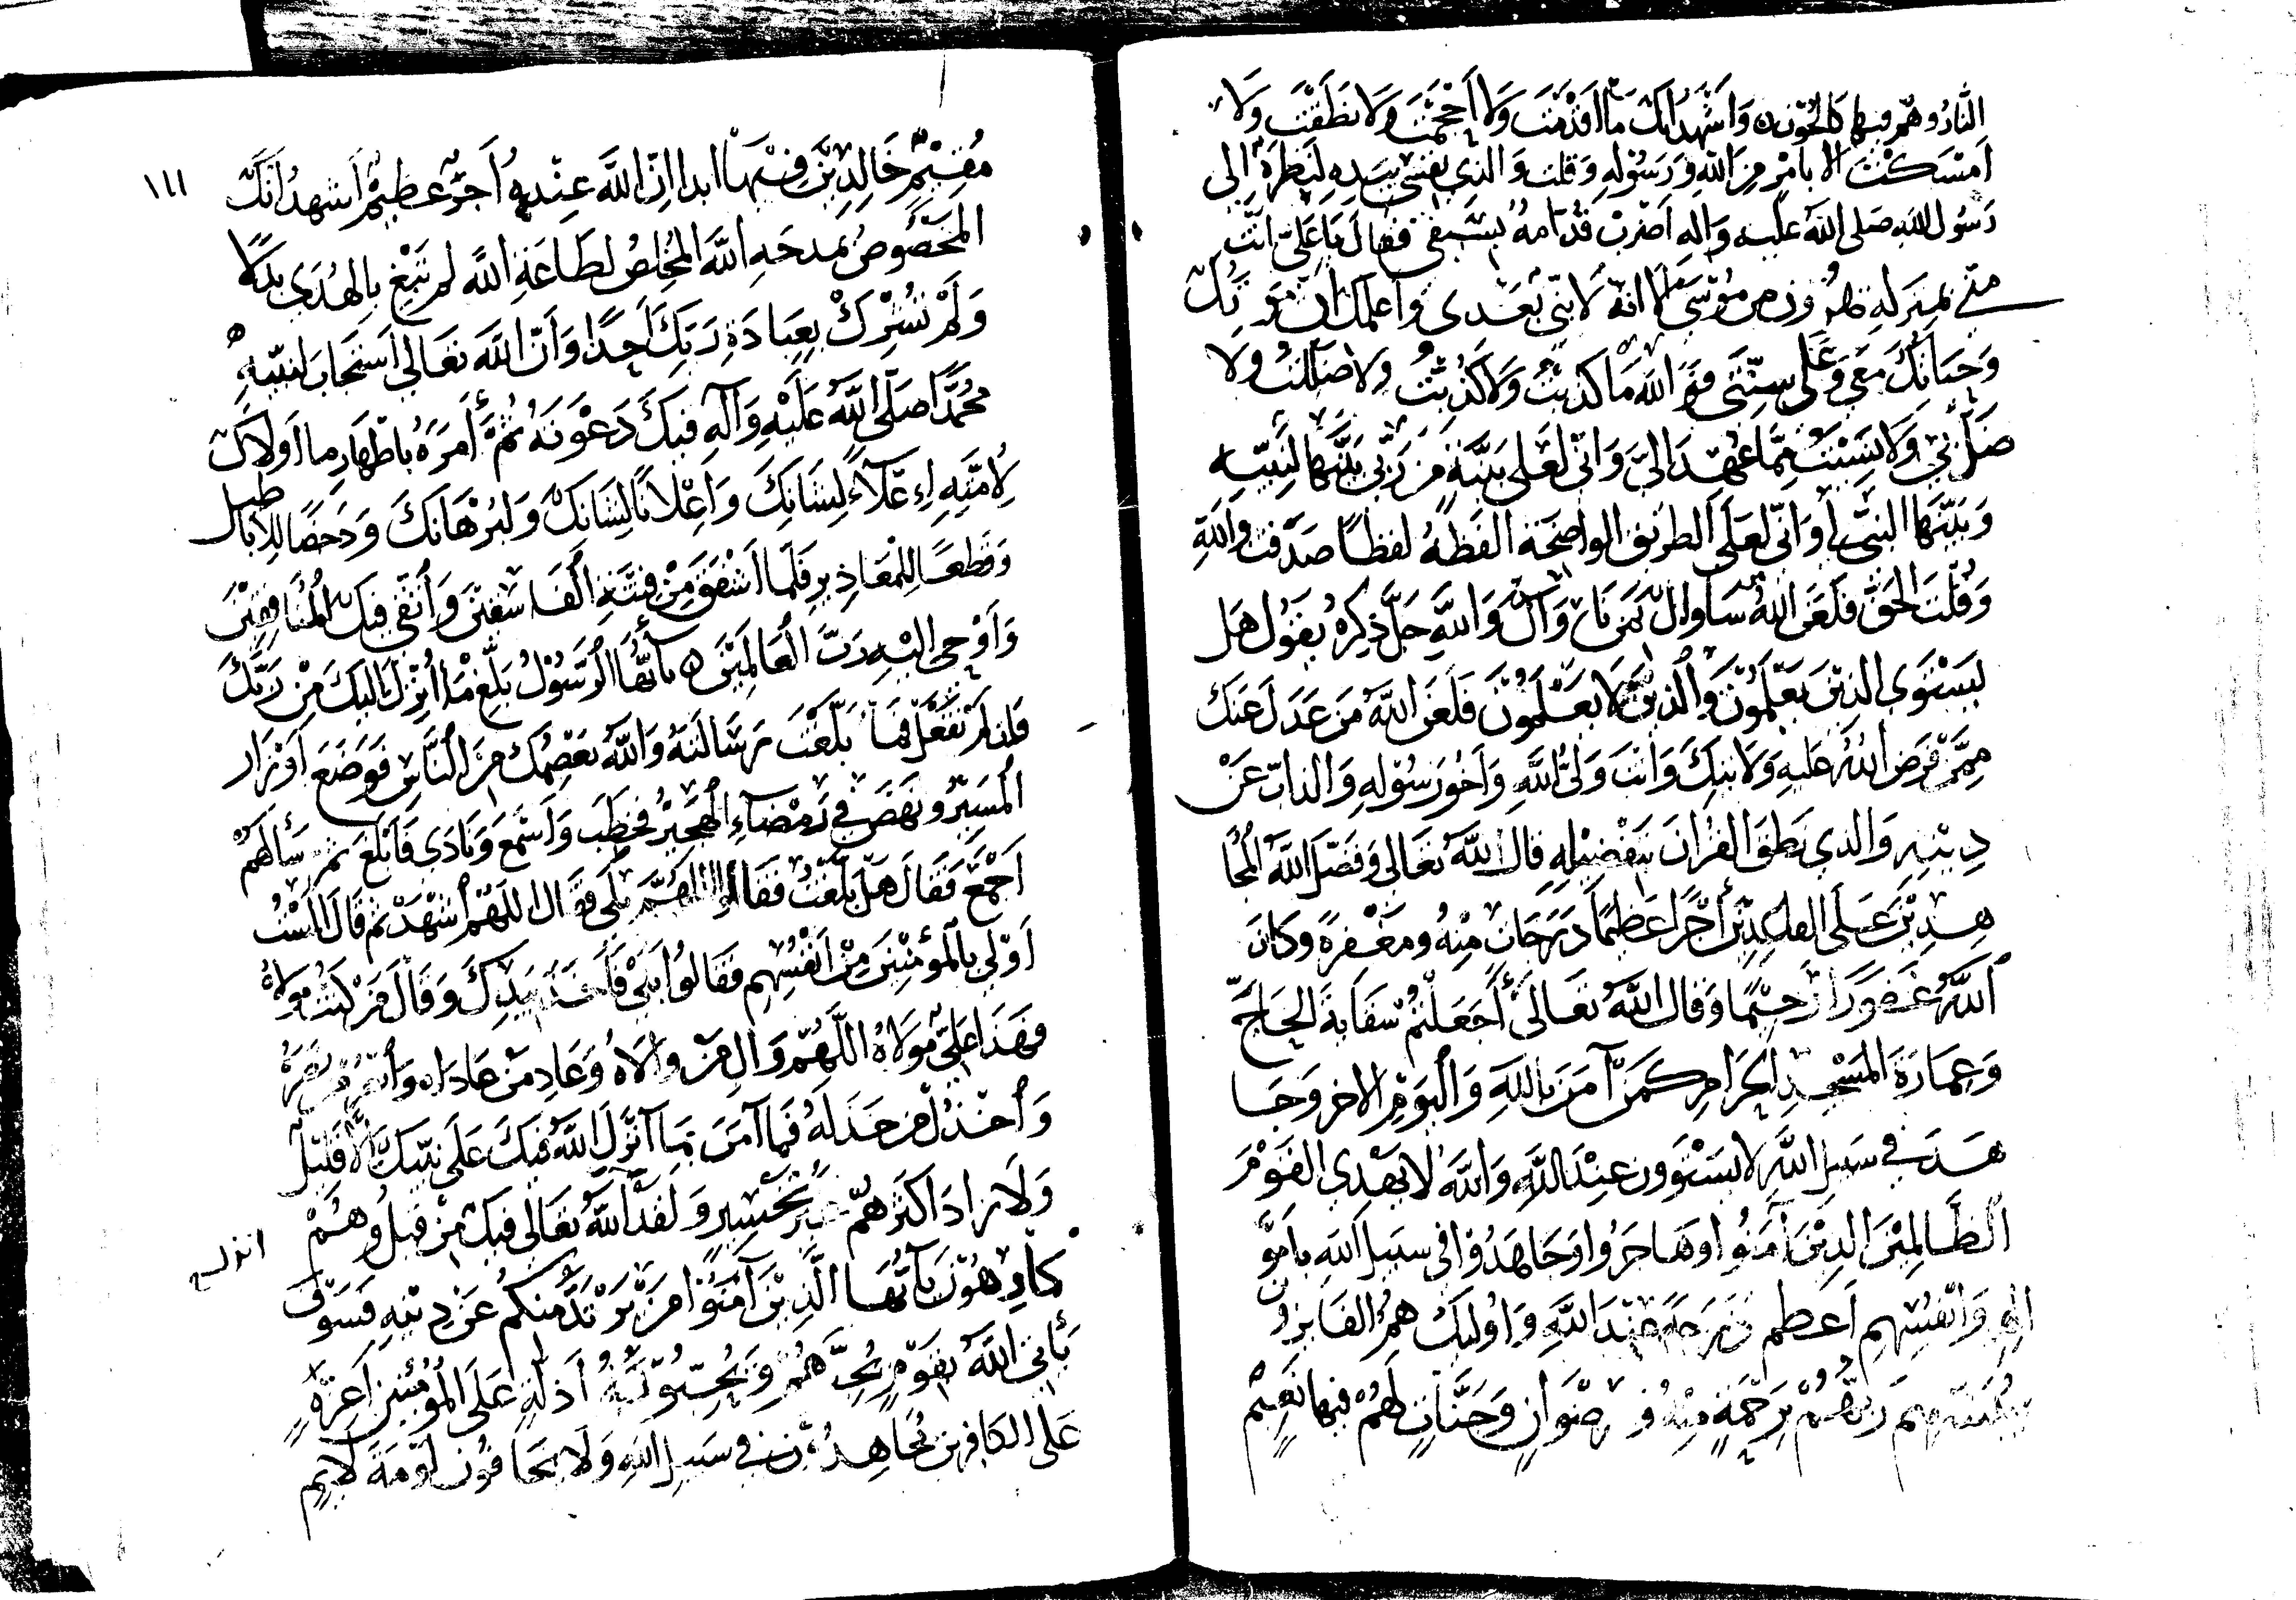 النار وهم فيها كالحون واشهد انك ما اقدمت ولا احجمت ولا نطقت ولا
امسكت الا بامر من الله ورسوله وقلت والذي نفسي بيده لنظر الى
رسول الله صلى الله عليه واله اضرب قدامه بسيفي فقال يا علي انت
مني بمنزلة هرون من موسى الا انه لا نبي بعدى واعلمك ان موتك
وحياتك معي وعلى سنتي فو الله ما كذبت ولا كذبت ولا ضللت ولا
ضل بي ولا نسيت مما عهد الي واني لعلى بينة من ربي بينها لنبيه
وبينها النبي لي واني لعلى الطريق الواضحة الفظه لفظا صدقت والله
وقلت الحق فلعن الله من ساواك بمن ناواك والله جل ذكره يقول هل
يستوى الذين يعلمون والذين لا يعلمون فلعن الله من عدل عنك
ممن فرض الله عليه ولايتك وانت ولي الله واخو رسوله والذاب عن
دينه والذي نطق القران بتفضيله قال الله تعالى وفضل الله المجا
هدين على القاعدين أجرا عظيما درجات منه ومغفرة وكان
الله غفورا رحيما وقال الله تعالى أجعلتم سقاية الحاج
وعمارة المسجد الحرام كمن آمن بالله واليوم الاخر وجا
هد في سبيل الله لا يستوون عند الله والله لا يهدي القوم
الظالمين الذين آمنوا وهاجروا وجاهدوا في سبيل الله بامو
الهم وانفسهم اعظم درجة عند الله واوليك هم الفايزون
يبشرهم ربهم برحمة منه ورضوان وجنات لهم فيها نعيم
١١١
مقيم خالدين فيها ابدا ان الله عنده أجر عظيم اشهد انك
المخصوص بمدحه الله المخلص لطاعة الله لم تبغ بالهدى بدلا
ولم تشرك بعبادة ربك احدا وأن الله تعالى استجاب لنبيه
محمد صلى الله عليه وآله فيك دعوته ثم أمره باظهار ما اولاك
لامته اعلاء لشانك واعلانا لبرهانك ودحضا للاباطيل
وقطعا للمعاذير فلما اشفق من فتنة الفاسقين وأتقى فيك المنافقين
وأوحى اليه رب العالمين يا أيها الرسول بلغ ما انزل اليك من ربك
فان لم تفعل فما بلغت رسالته والله يعصمك من الناس فوضع اوزار
المسير ونهض في رمضاء الهجير فخطب واسمع ونادى فابلغ ثم سألهم
اجمع فقال هل بلغت فقالوا اللهم بلى فقال اللهم اشهد ثم قال الست
اولى بالمؤمنين من انفسهم فقالوا بلى فاخذ بيدك وقال من كنت مولاه
فهذا علي مولاه اللهم وال من والاه وعاد من عاداه وانصر من نصره
واخذل من خذله فما آمن بما أنزل الله فيك على نبيك الا قليل
ولا زاد اكثرهم غير تخسير ولقد الله تعالى فيك من قبل وهم
انزل
كارهون يا أيها الذين آمنوا من يرتد منكم عن دينه فسوف
يأتي الله بقوم يحبهم ويحبونه أذلة على المؤمنين اعزة
على الكافرين يجاهدون في سبيل الله ولا يخافون لومة لايم